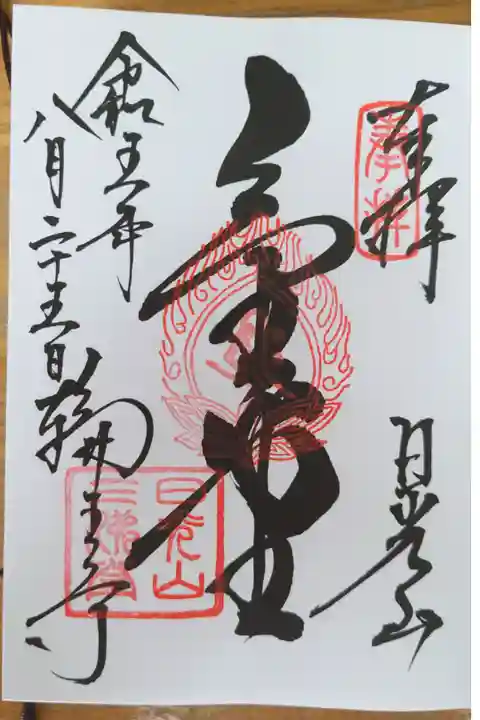 奉拝
日光山
奉拝
金堂
令和五年
八月二十五日
輪王寺
日光山
三佛堂